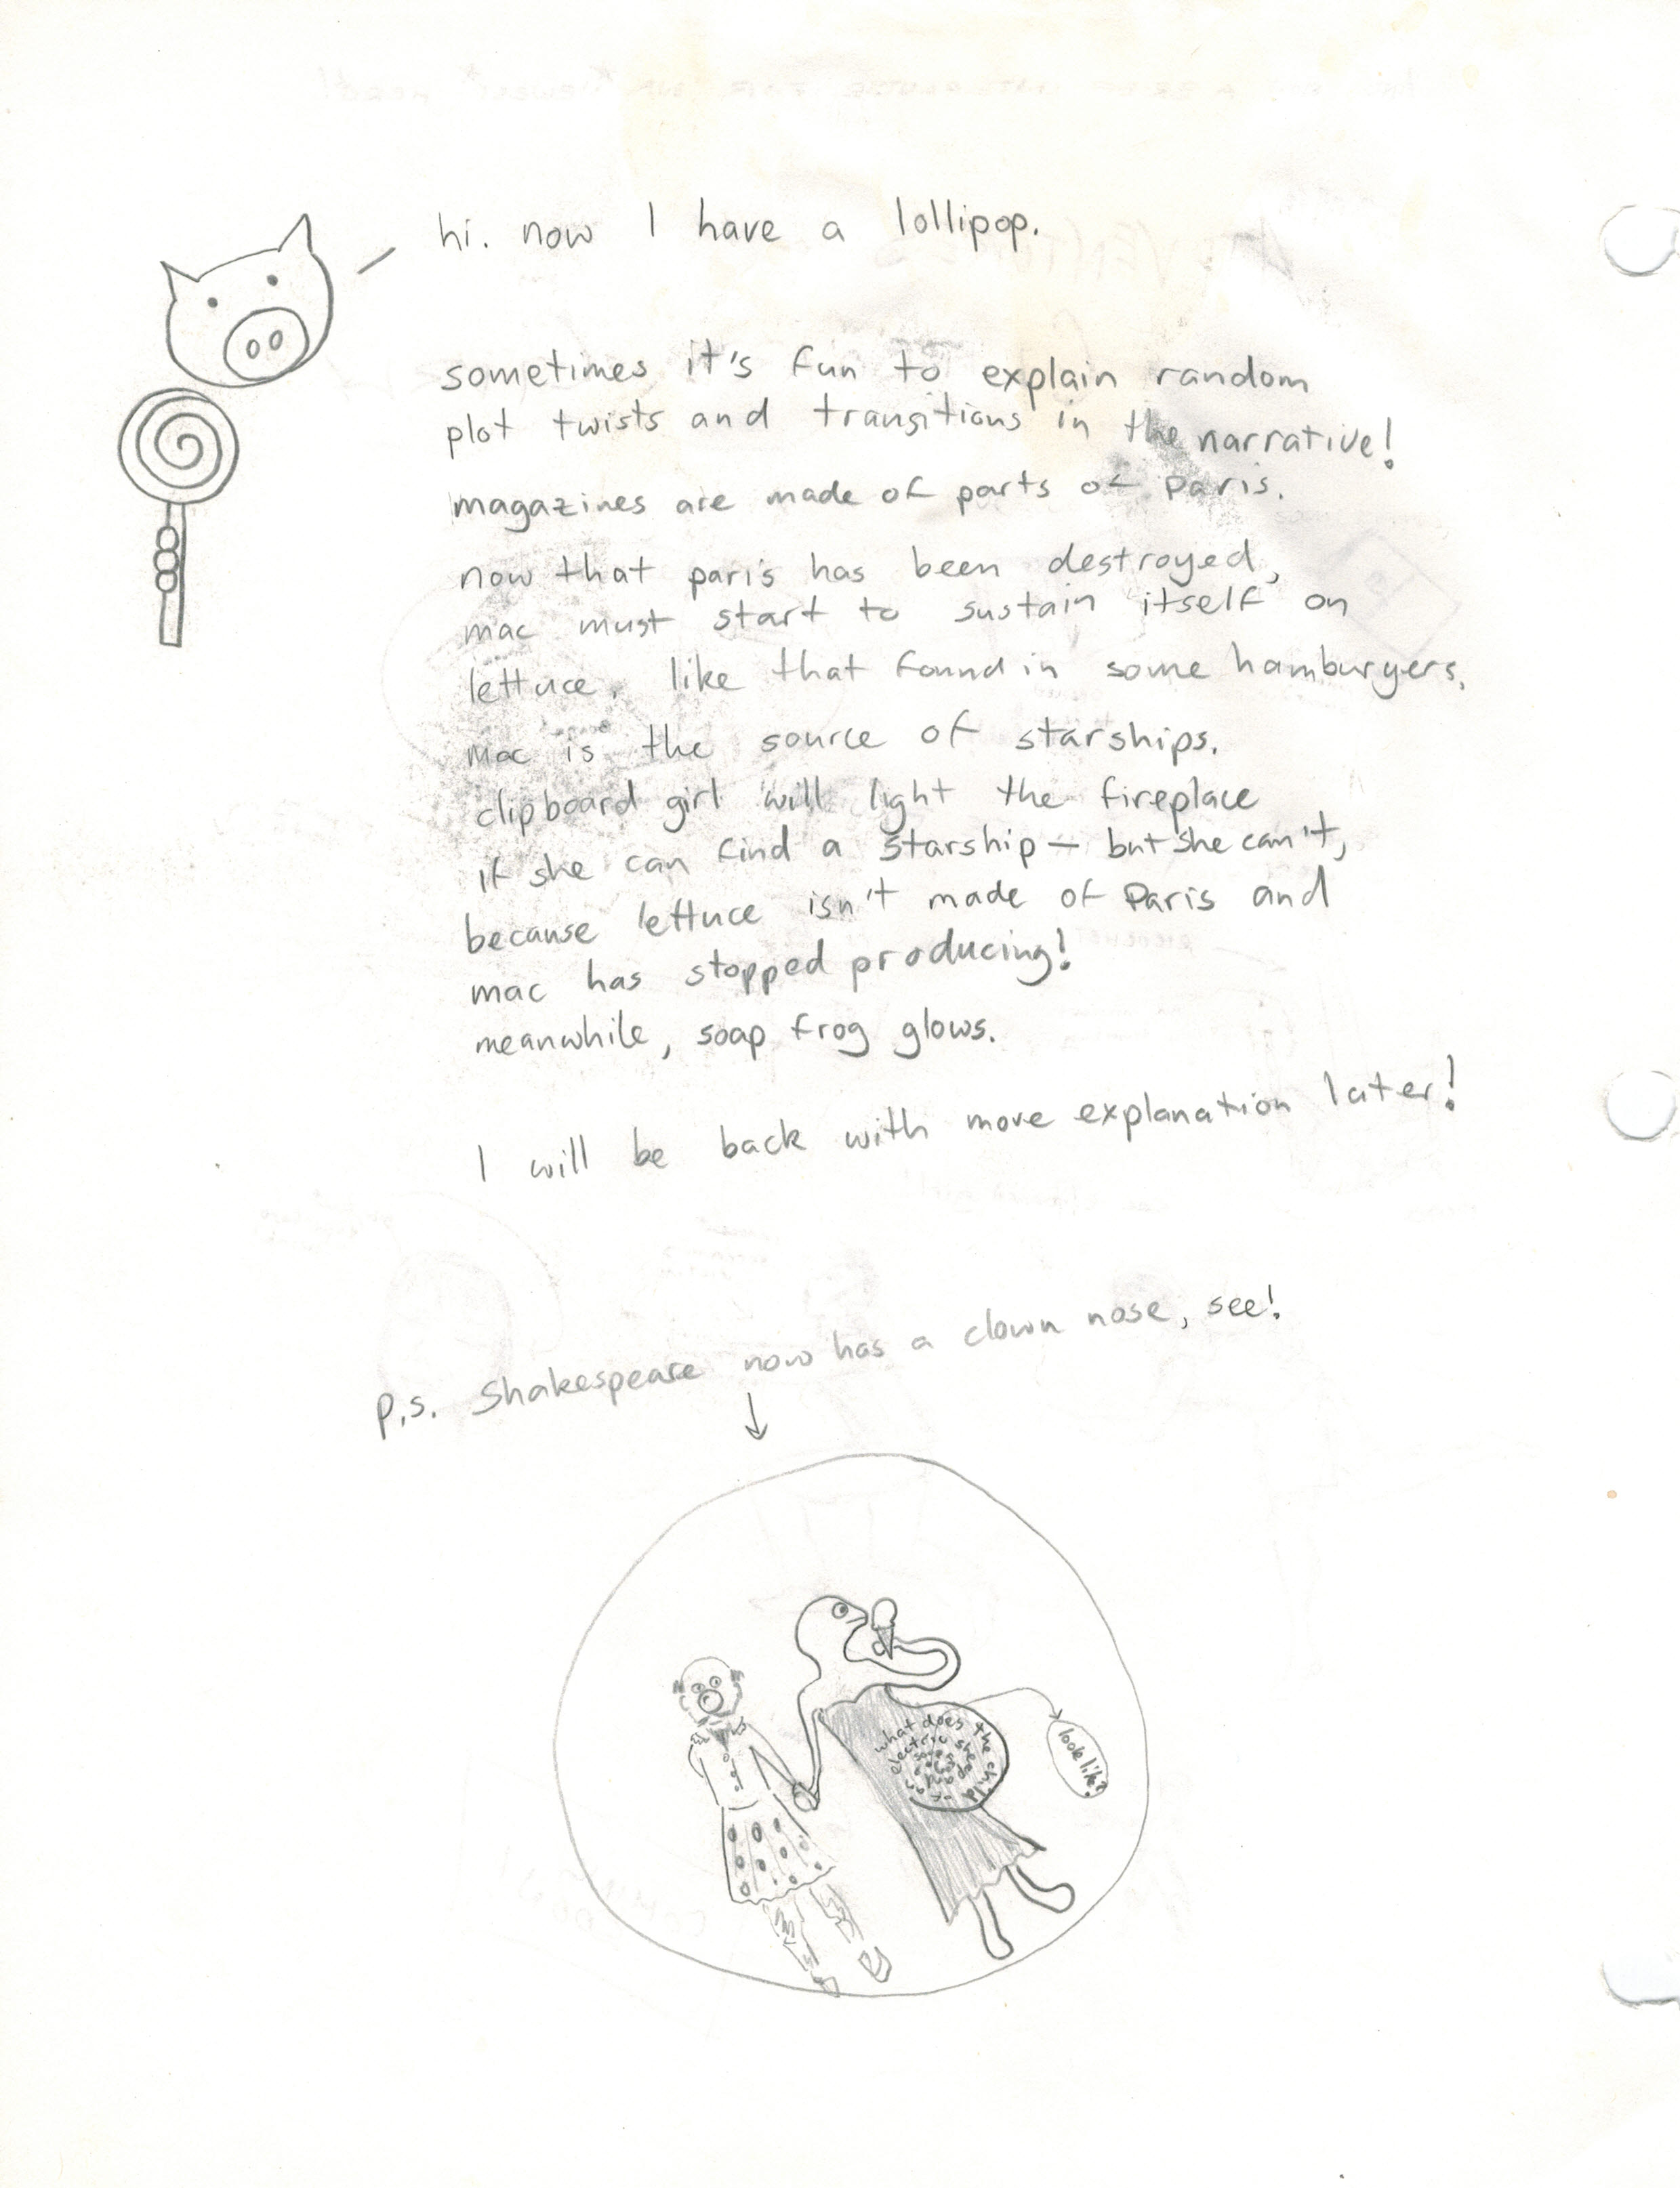 hi. now I have a lollipop.
sometimes it's fun to explain random
plot twists and transitions in the narrative!
magazines are made of parts of Paris.
now that paris has been destroyed,
mac must start to sustain itself on
lettuce, like that found in some hamburgers.
mac is the source of starships.
clipboard girl will light the fireplace
if she can find a starship – but she can't,
because lettuce isn't made of Paris and
mac has stopped producing!
meanwhile, soap frog glows.
I will be back with more explanation later!
p.s. Shakespeare now has a clown nose, see!
↓
what does the child
electric
look like?